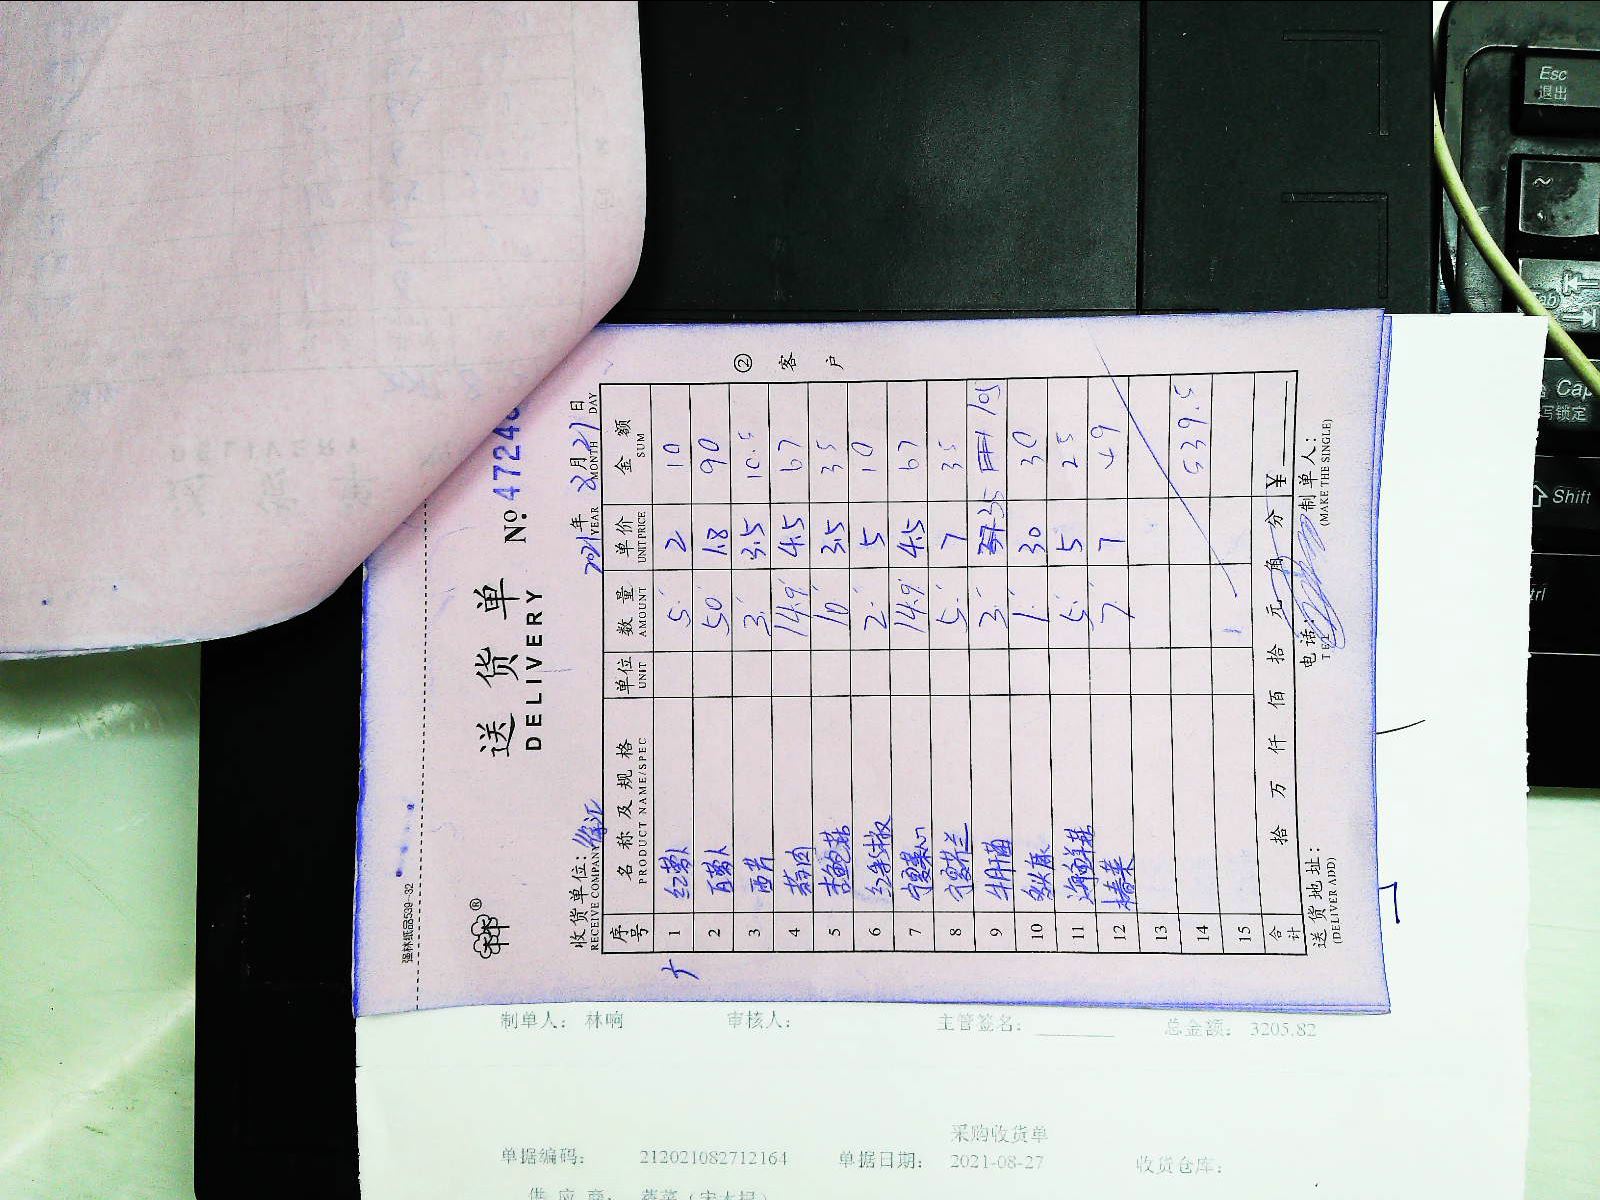 强林纸品539-32
送货单
DELIVERY
No. 47246
收货单位：徐汇
RECEIVE COMPANY
2021年 8月27日
YEAR MONTH DAY
序号 名称及规格 单位 数量 单价 金额
PRODUCT NAME/SPEC UNIT AMOUNT UNIT PRICE SUM
1 红萝卜 5 2 10
2 白萝卜 50 1.8 90
3 西芹 3 3.5 10.5
4 14.9 4.5 67
5 杏鲍菇 10 3.5 35
6 红彩椒 2 5 10
7 14.9 4.5 67
8 5 7 35
9 牛肝菌 3 35 105
10 1 30 30
11 海鲜菇 5 5 25
12 椿菜 7 7 49
13
14 539.5
15
合计 拾 万 仟 佰 拾 元 角 分 ¥
送货地址：
(DELIVER ADD)
电话：
TEL
制单人：
(MAKE THE SINGLE)
② 客户
制单人： 林响 审核人： 主管签名： 总金额： 3205.82
采购收货单
单据编码： 212021082712164 单据日期： 2021-08-27 收货仓库：
供应商：
Esc
退出
~
Tab
Cap
写锁定
Shift
trl